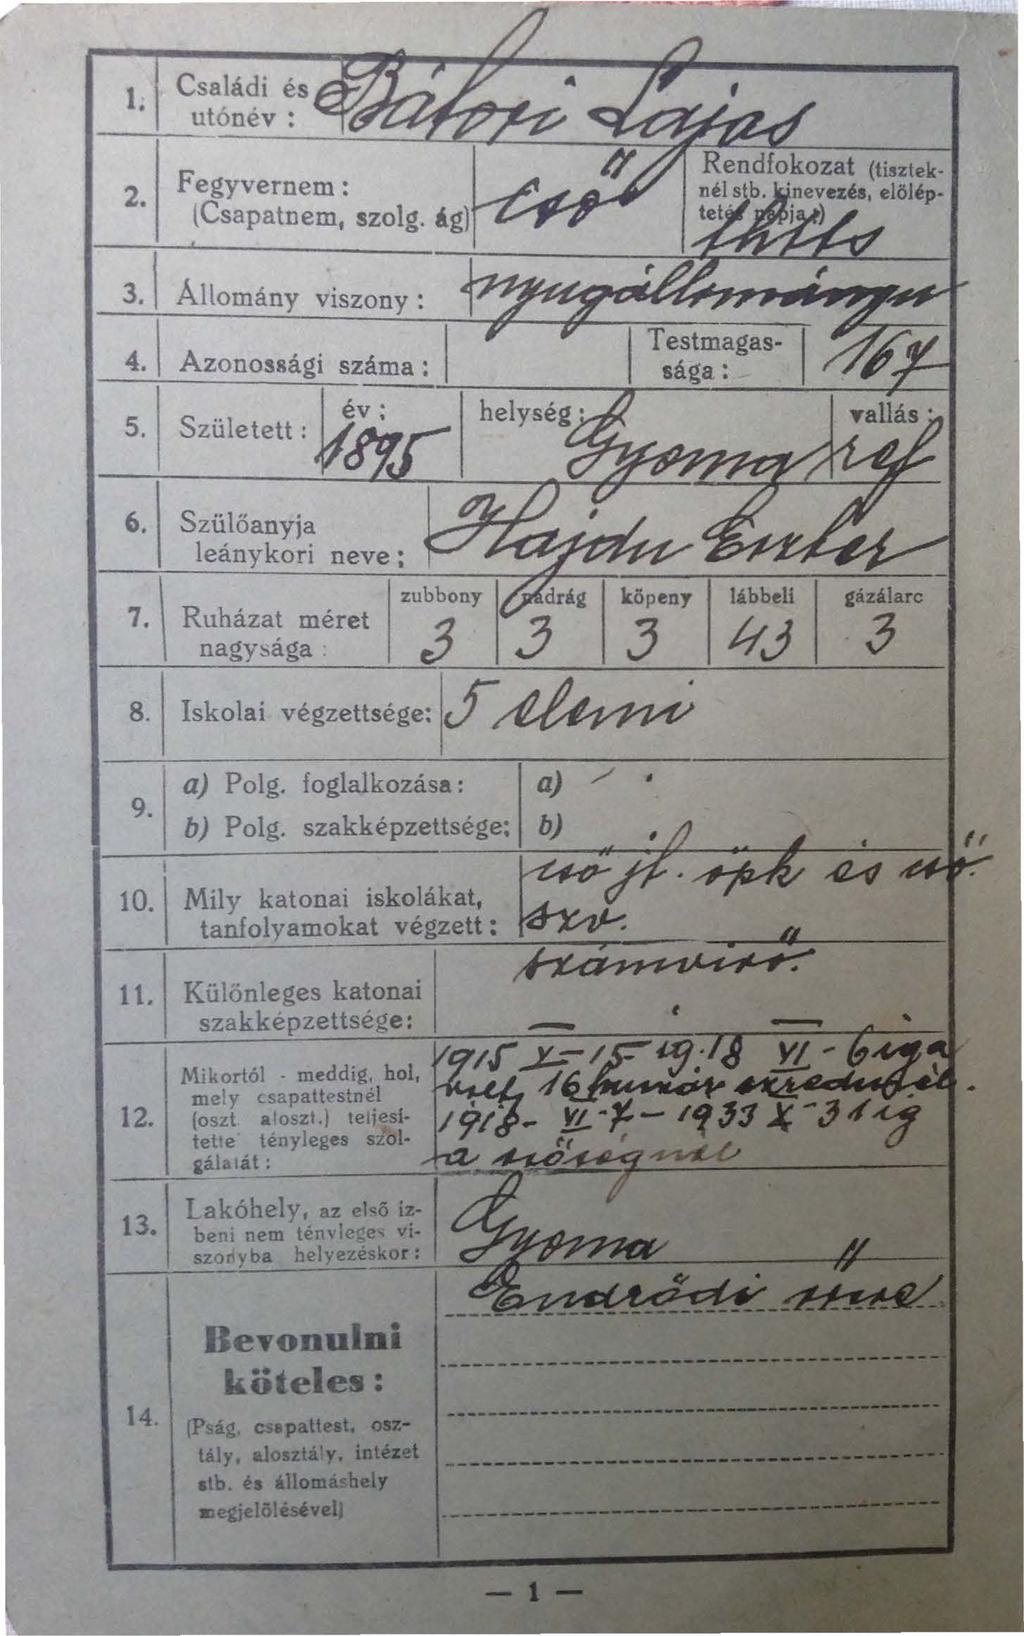 1. Családi és
utónév : Bátori Lajos
2. Fegyvernem :
(Csapatnem, szolg. ág) cső
Rendfokozat (tisztek-
nél stb. kinevezés, előlép-
tetés napja:)
thtts
3. Állomány viszony : nyugállományu
4. Azonossági száma :
Testmagas-
sága : 167
5. Született : év : 1895 helység : Gyoma vallás : ref
6. Szülőanyja
leánykori neve : Hajdu Eszter
7. Ruházat méret
nagysága :
zubbony nadrág köpeny lábbeli gázálarc
3 3 3 43 3
8. Iskolai végzettsége: 5 elemi
9. a) Polg. foglalkozása: a)
b) Polg. szakképzettsége: b)
10. Mily katonai iskolákat,
tanfolyamokat végzett :
csőjt. öpk és cső.
szv.
11. Különleges katonai
szakképzettsége:
számvivő.
12. Mikortól - meddig, hol,
mely csapattestnél
(oszt. aloszt.) teljesí-
tette tényleges szol-
gálatát :
1915 X-15-19.18 VI-6 iga
16 huszár ezrednél.
1918- VI-7-1933 X-31 ig
a csőségnél
13. Lakóhely, az első íz-
beni nem tényleges vi-
szonyba helyezéskor : Gyoma
14. Bevonulni
köteles :
(Pság, csapattest, osz-
tály, alosztály, intézet
stb. és állomáshely
megjelölésével)
Endrődi őrs
— 1 —